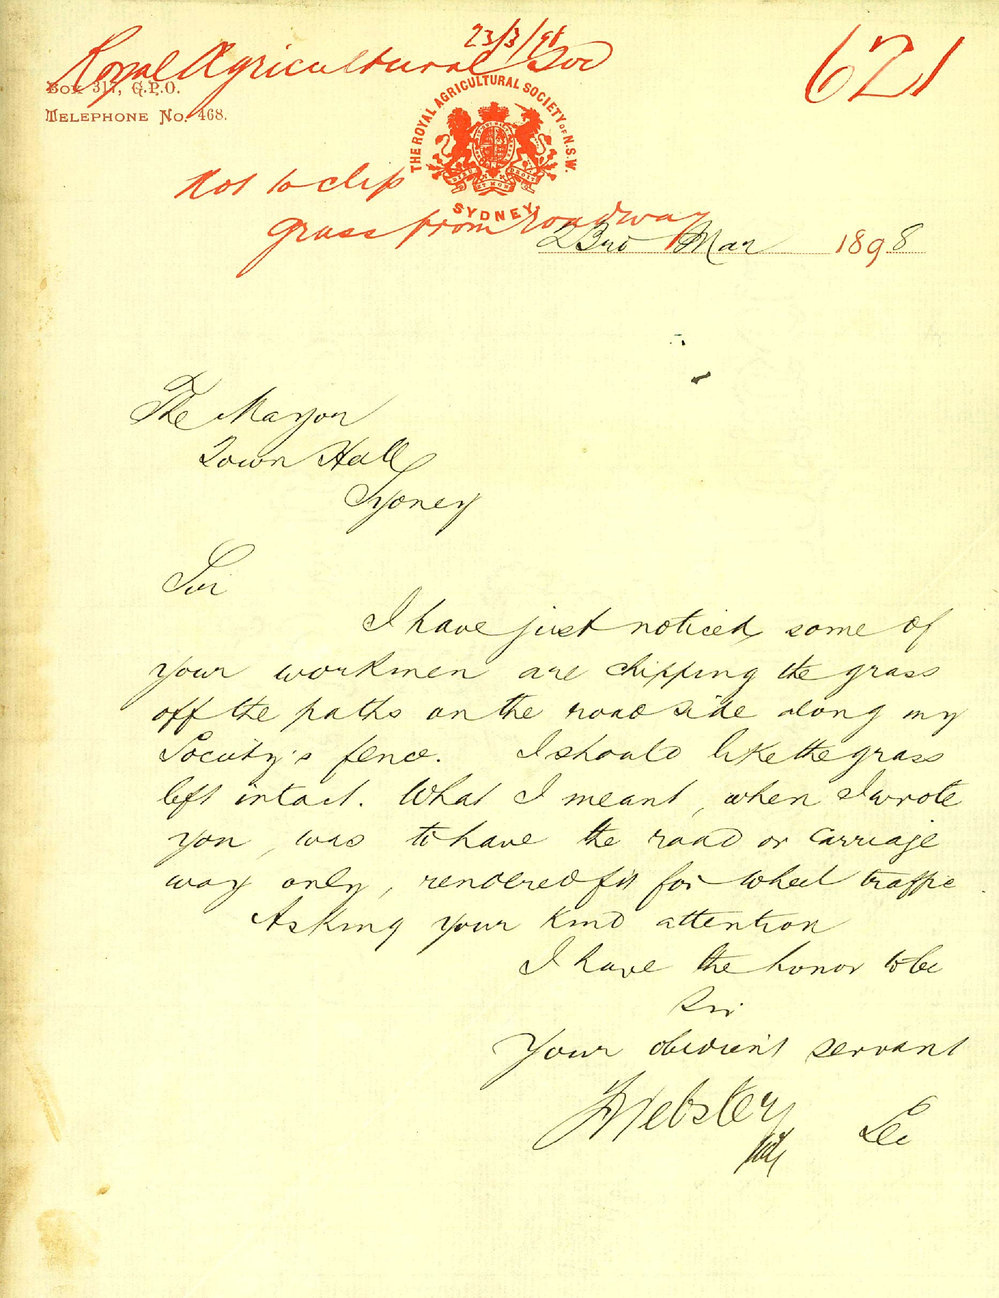 23/3/98
Royal Agricultural Soc
621
Box 317, G.P.O.
Telephone No. 468.
THE ROYAL AGRICULTURAL SOCIETY OF N.S.W.
SYDNEY
Not to chip
grass from roadway
23rd Mar 1898
The Mayor
Town Hall
Sydney
Sir
I have just noticed some of
your workmen are chipping the grass
off the paths on the road side along my
Society's fence. I should like the grass
left intact. What I meant, when I wrote
you, was to have the road or carriage
way only, rendered fit for wheel traffic
Asking your kind attention
I have the honor to be
Sir
Your obedient servant
Webster
Sec